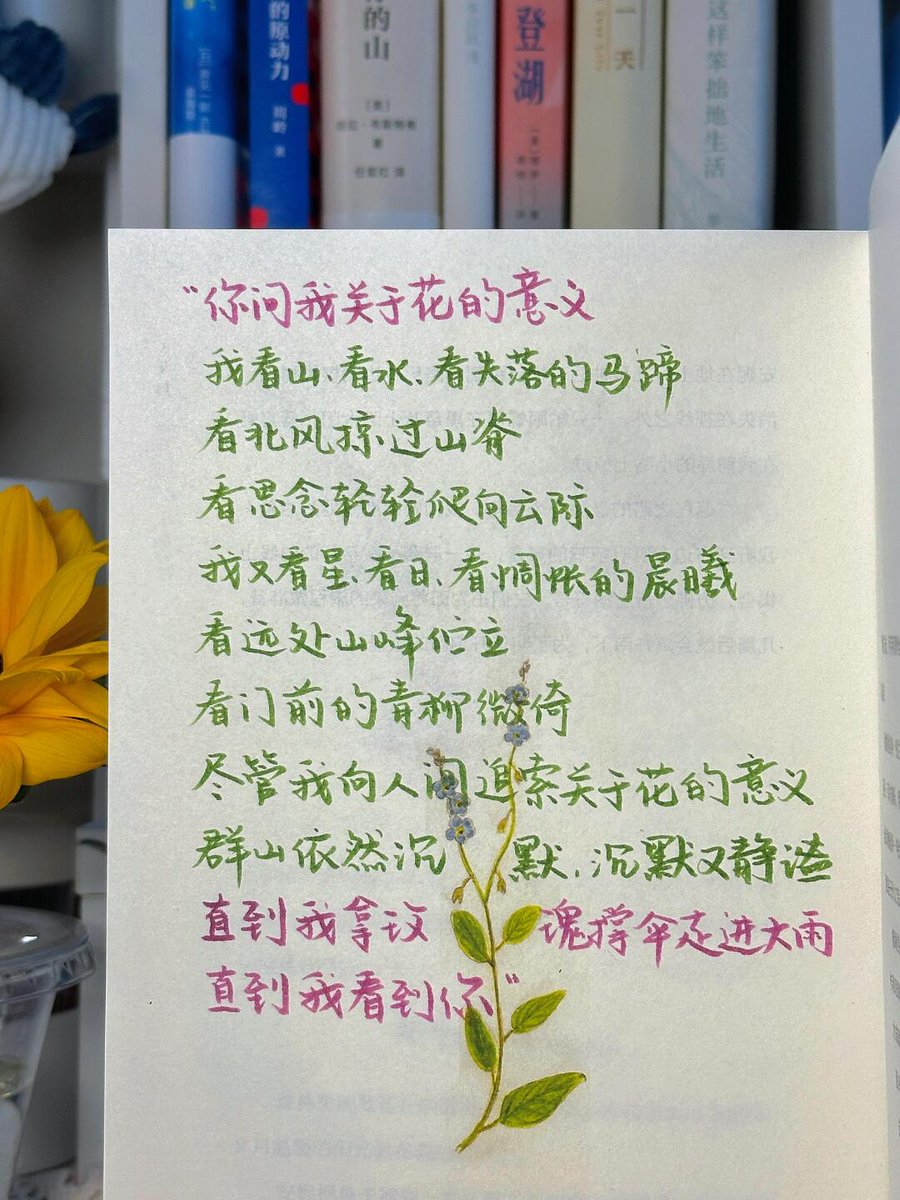 的原动力
周岭 著
的山
著
登湖
一天
这样笨拙地生活
“你问我关于花的意义
我看山、看水、看失落的马蹄
看北风掠过山脊
看思念轻轻爬向云际
我又看星、看日、看惆怅的晨曦
看远处山峰伫立
看门前的青柳微倚
尽管我向人间追索关于花的意义
群山依然沉默、沉默又静谧
直到我拿玫瑰撑伞走进大雨
直到我看到你”